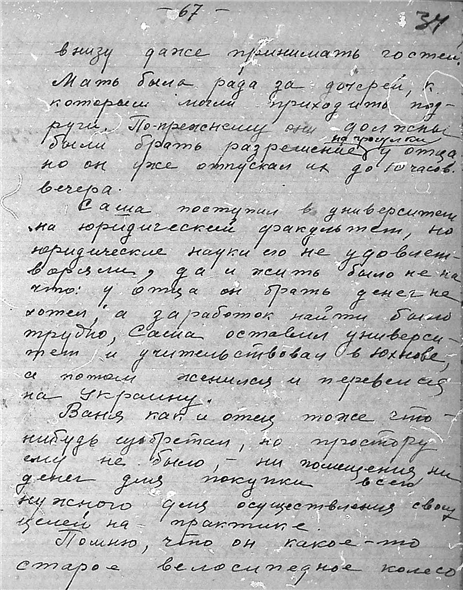 - 67 -
34
внизу даже принимать гостей.
Мать была рада за дочерей, к
которым могли приходить под-
руги. По-прежнему они должны
были брать разрешение на прогулки у отца
но он уже отпускал их до 10 часов
вечера.
Саша поступил в университет
на юридический факультет, но
юридические науки его не удовлет-
воряли, да и жить было не на
что: у отца он брать денег не
хотел, а заработок найти было
трудно, Саша оставил универси-
тет и учительствовал в Юхнове,
а потом женился и перевелся
на Украину.
Ваня как и отец тоже что-
нибудь изобретал, но простору
ему не было, - ни помещения, ни
денег для покупки всего
нужного для осуществления своих
целей на практике
Помню, что он какое-то
старое велосипедное колесо